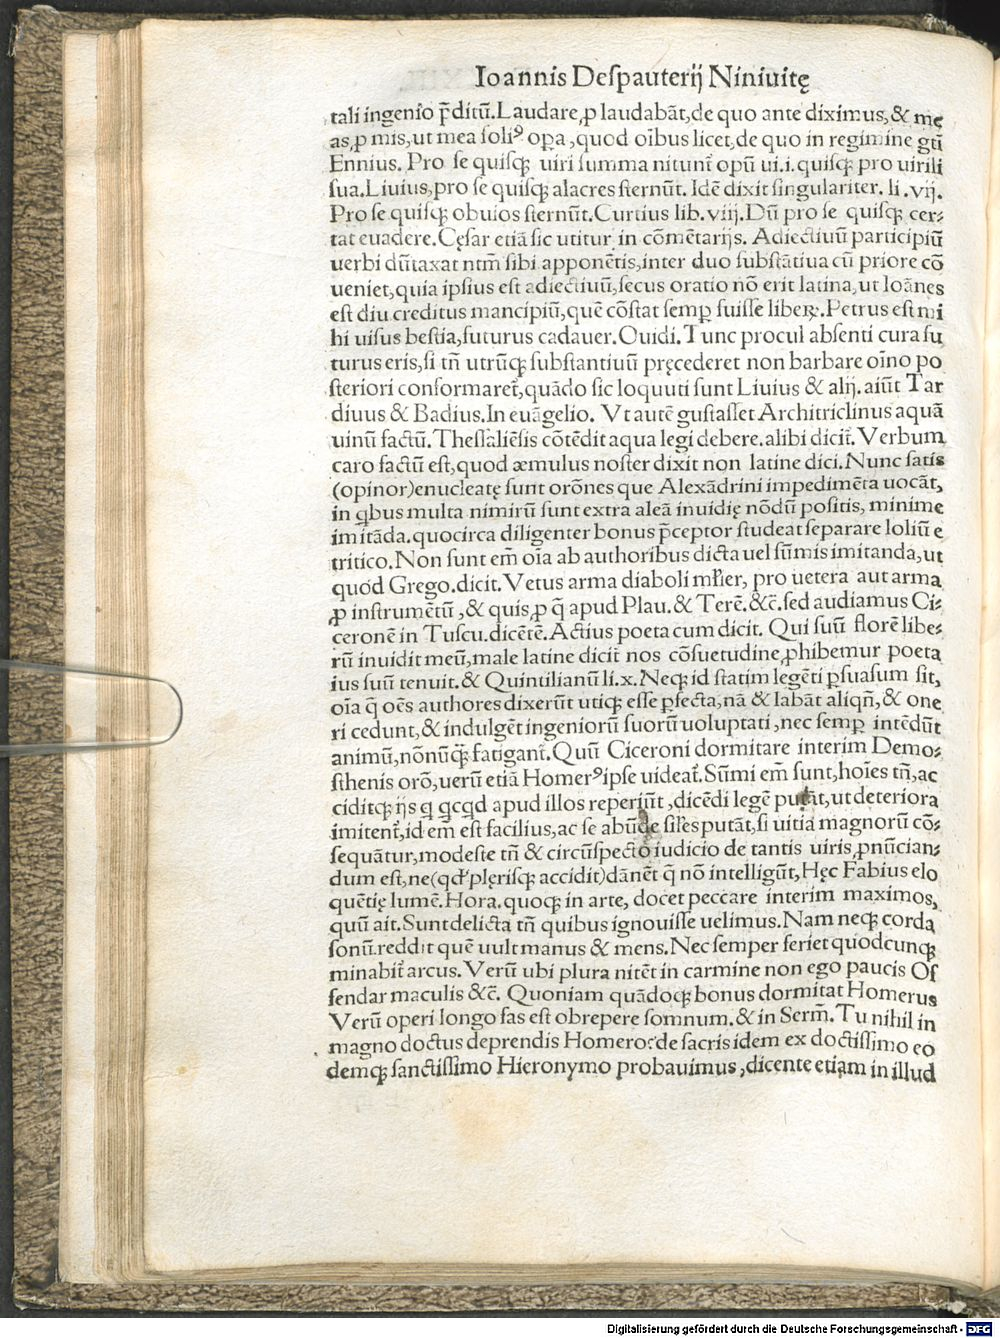 Ioannis Deſpauterij Niniuitę
tali ingenio p̄ditū. Laudare, ꝑ laudabāt, de quo ante diximus, & mę
as, ꝑ mis, ut mea ſoliꝰ oꝑa, quod oībus licet, de quo in regimine gti
Ennius. Pro ſe quiſqꝫ uiri ſumma nitunt̄ opū ui. i. quiſqꝫ pro uirili
ſua. Liuius, pro ſe quiſqꝫ alacres ſternūt. Idē dixit ſingulariter. li. vij.
Pro ſe quiſqꝫ obuios ſternūt. Curtius lib. viij. Dū pro ſe quiſqꝫ cer⸗
tat euadere. Cęſar etiā ſic utitur in cōmētarijs. Adiectiuū participiū
uerbi dūtaxat ntm̄ ſibi apponētis, inter duo ſubſtātiua cū priore cō
ueniet, quia ipſius eſt adiectiuū, ſecus oratio nō erit latina, ut Ioānes
eſt diu creditus mancipiū, quē cōſtat ſemꝑ fuiſſe liberꝝ. Petrus eſt mi
hi uiſus beſtia, futurus cadauer. Ouidi. Tunc procul abſenti cura fu
turus eris, ſi tn̄ utrūqꝫ ſubſtantiuū pręcederet non barbare oīno po
ſteriori conformaret̄, quādo ſic loquuti ſunt Liuius & alij. aiūt Tar
diuus & Badius. In euāgelio. Vt autē guſtaſſet Architriclinus aquā
uinū factū. Theſſaliēſis cōtēdit aqua legi debere. alibi dicit̄. Verbum
caro factū eſt, quod æmulus noſter dixit non latine dici. Nunc ſatis
(opinor) enucleatę ſunt orōnes que Alexādrini impedimēta uocāt,
in qbus multa nimirū ſunt extra aleā inuidię nōdū poſitis, minime
imitāda. quocirca diligenter bonus p̄ceptor ſtudeat ſeparare loliū e
tritico. Non ſunt em̄ oīa ab authoribus dicta uel ſūmis imitanda, ut
quod Grego. dicit. Vetus arma diaboli mr̄ier, pro uetera aut arma
ꝑ inſtrumētū, & quis, ꝑ q̄ apud Plau. & Terē. &c̄. ſed audiamus Ci⸗
ceronē in Tuſcu. dicētē. Actius poeta cum dicit. Qui ſuū florē libe⸗
rū inuidit meū, male latine dicit̄ nos cōſuetudine, ꝓhibemur poeta
ius ſuū tenuit. & Quintilianū li. x. Neqꝫ id ſtatim legēti ꝑſuaſum ſit,
oīa q̄ oēs authores dixerūt utiqꝫ eſſe ꝑfecta, nā & labāt aliqn̄, & one
ri cedunt, & indulgēt ingeniorū ſuorū uoluptati, nec ſemꝑ intēdūt
animū, nōnūqꝫ fatigant̄. Quū Ciceroni dormitare interim Demo⸗
ſthenis orō, uerū etiā Homerꝰ ipſe uideat̄. Sūmi em̄ ſunt, hoīes tn̄, ac
ciditqꝫ ijs q qcqd apud illos reperiūt, dicēdi legē putāt, ut deteriora
imitent̄, id em̄ eſt facilius, ac ſe abūde ſiłes putāt, ſi uitia magnorū cō⸗
ſequātur, modeſte tn̄ & circūſpecto iudicio de tantis uiris, ꝓnūcian⸗
dum eſt, ne (qđ plęriſqꝫ accidit) dānēt q̄ nō intelligūt, Hęc Fabius elo
quētię lumē. Hora. quoqꝫ in arte, docet peccare interim maximos,
quū ait. Sunt delicta tn̄ quibus ignouiſſe uelimus. Nam neqꝫ corda
ſonū reddit quē uult manus & mens. Nec ſemper feriet quodcunqꝫ
minabit̄ arcus. Verū ubi plura nitēt in carmine non ego paucis Of
fendar maculis &c̄. Quoniam quādoqꝫ bonus dormitat Homerus
Verū operi longo fas eſt obrepere ſomnum. & in Serm̄. Tu nihil in
magno doctus deprendis Homero: de ſacris idem ex doctiſſimo eo
demqꝫ ſanctiſſimo Hieronymo probauimus, dicente etiam in illud
Digitalisierung gefördert durch die Deutsche Forschungsgemeinschaft - DFG